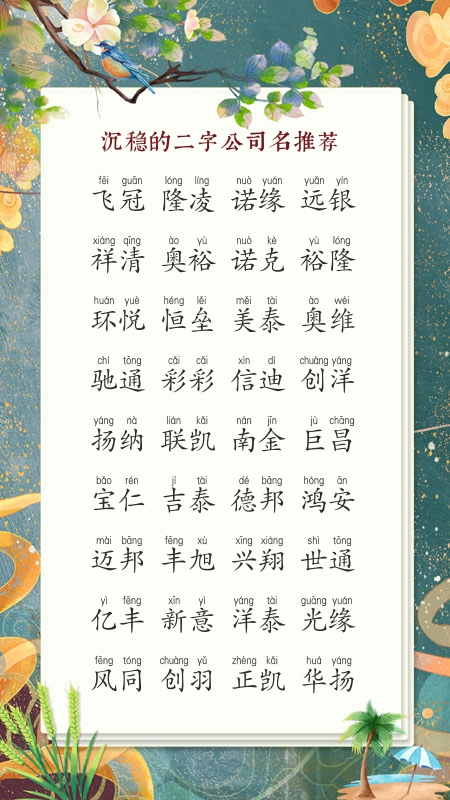 沉稳的二字公司名推荐
fēi guān lóng líng nuò yuán yuǎn yín
飞冠 隆凌 诺缘 远银
xiáng qīng ào yù nuò kè yù lóng
祥清 奥裕 诺克 裕隆
huán yuè héng lěi měi tài ào wéi
环悦 恒垒 美泰 奥维
chí tōng cǎi cǎi xìn dí chuàng yáng
驰通 彩彩 信迪 创洋
yáng nà lián kǎi nán jīn jù chāng
扬纳 联凯 南金 巨昌
bǎo rén jí tài dé bāng hóng ān
宝仁 吉泰 德邦 鸿安
mài bāng fēng xù xīng xiáng shì tōng
迈邦 丰旭 兴翔 世通
yì fēng xīn yì yáng tài guāng yuán
亿丰 新意 洋泰 光缘
fēng tóng chuàng yǔ zhèng kǎi huá yáng
风同 创羽 正凯 华扬